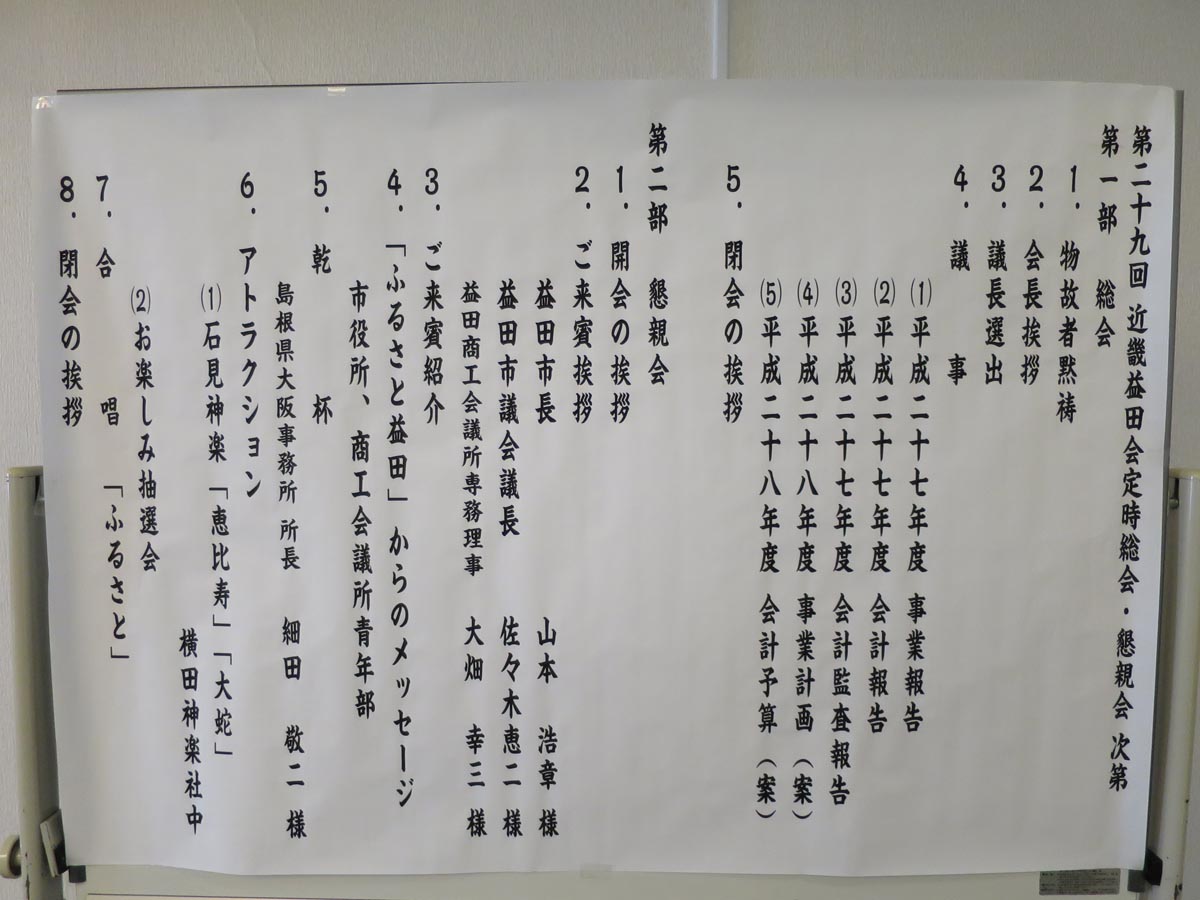 第二十九回 近畿益田会定時総会・懇親会 次第
第一部 総会
1. 物故者黙祷
2. 会長挨拶
3. 議長選出
4. 議 事
(1)平成二十七年度 事業報告
(2)平成二十七年度 会計報告
(3)平成二十七年度 会計監査報告
(4)平成二十八年度 事業計画(案)
(5)平成二十八年度 会計予算(案)
5. 閉会の挨拶
第二部 懇親会
1. 開会の挨拶
2. ご来賓挨拶
益田市長 山本 浩章 様
益田市議会議長 佐々木恵二 様
益田商工会議所専務理事 大畑 幸三 様
3. ご来賓紹介
4. 「ふるさと益田」からのメッセージ
市役所、商工会議所青年部
5. 乾 杯
島根県大阪事務所 所長 細田 敬二 様
6. アトラクション
(1)石見神楽「恵比寿」「大蛇」
横田神楽社中
(2)お楽しみ抽選会
7. 合 唱 「ふるさと」
8. 閉会の挨拶